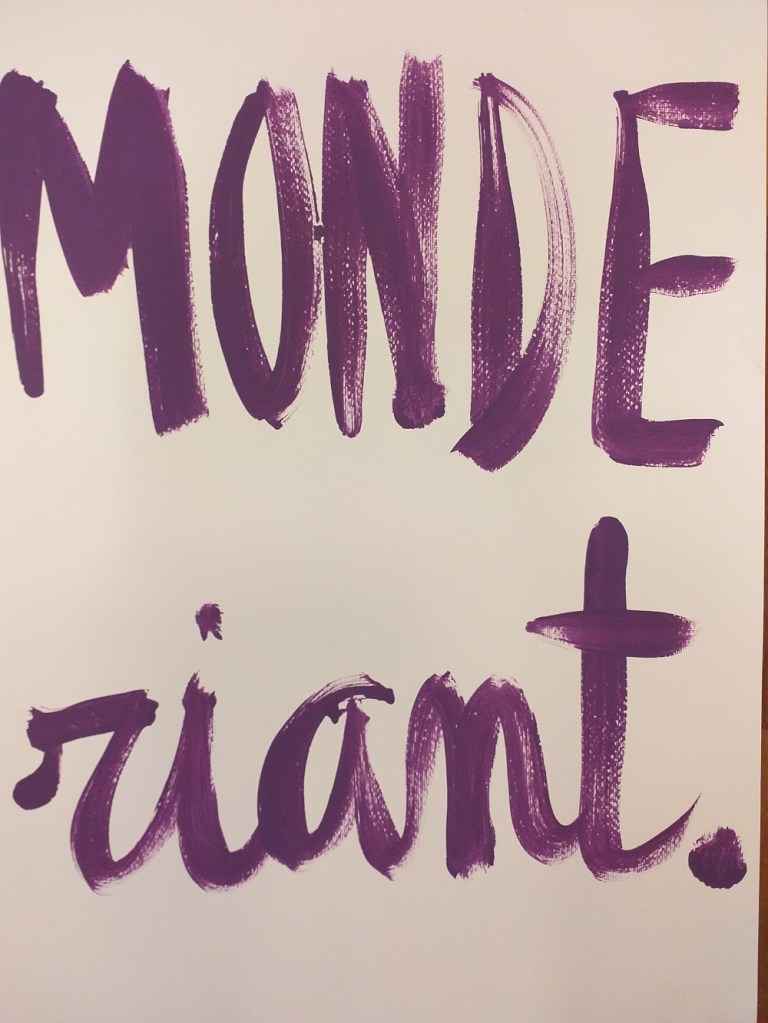 MONDE
riant.